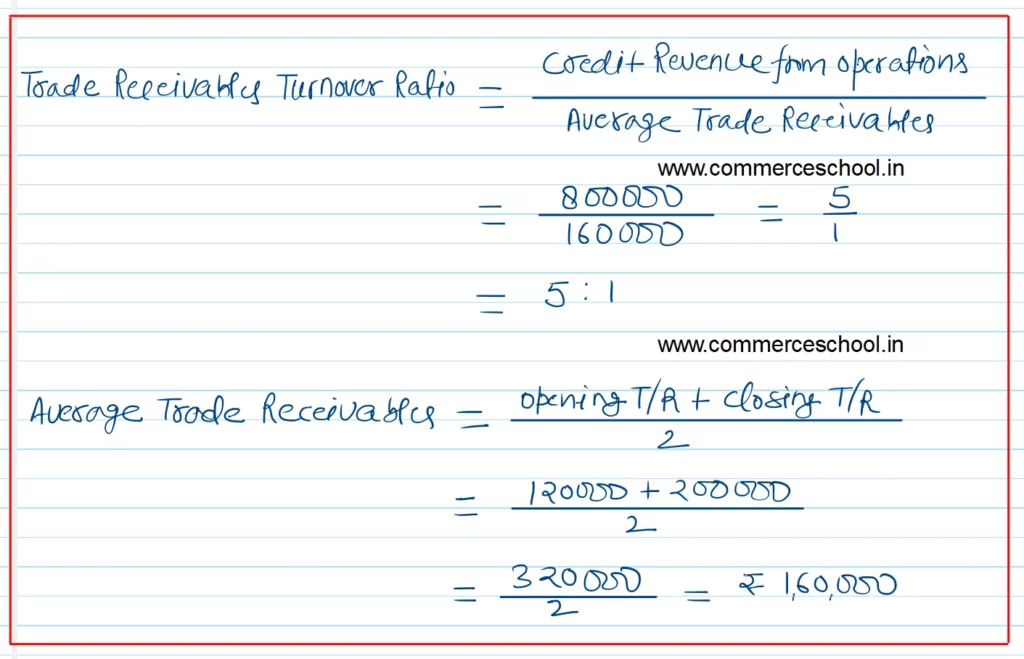 Trade Receivables Turnover Ratio = Credit Revenue from operations / Average Trade Receivables
www.commerceschool.in
= 800000 / 160000 = 5 / 1
= 5 : 1
www.commerceschool.in
Average Trade Receivables = opening T/R + closing T/R / 2
= 120000 + 200000 / 2
= 320000 / 2 = ₹ 1,60,000